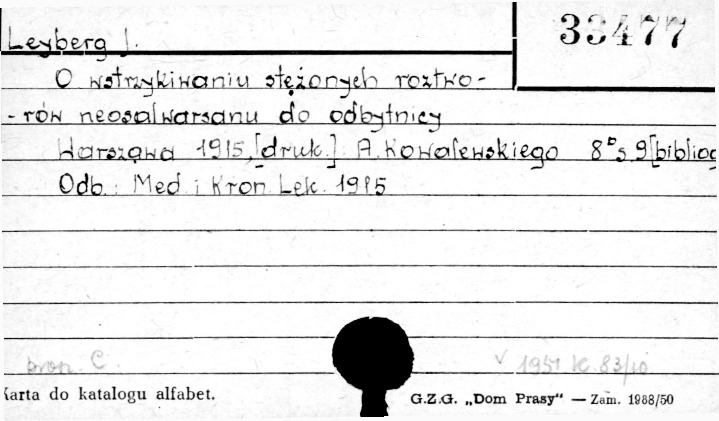 33477
Leyberg J.
O wstrzykiwaniu stężonych roztwo-
-rów neosalwarsanu do odbytnicy
Warszawa 1915, [druk.] A. Kowalewskiego 8° s 9 [bibliog
Odb.: Med. i Kron. Lek. 1915
C. v 1951 k 83/10
Karta do katalogu alfabet. G.Z.G. „Dom Prasy" — Zam. 1988/50